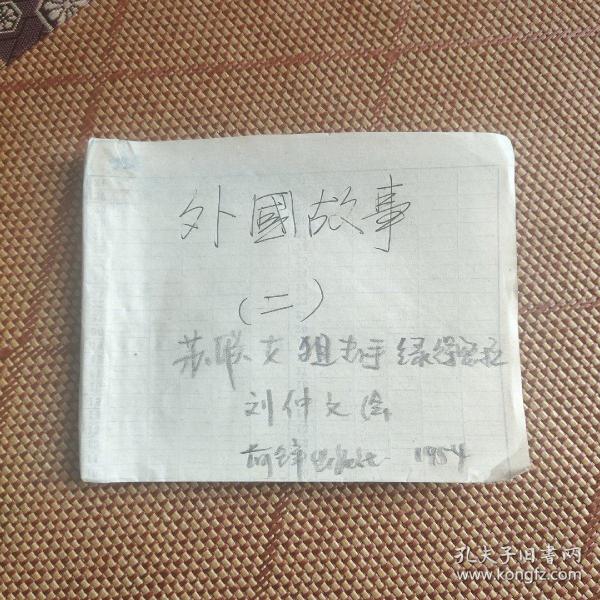 外國故事
(二)
苏联女狙击手
刘仲文绘
前锋出版社 1954
孔夫子旧書网
www.kongfz.com